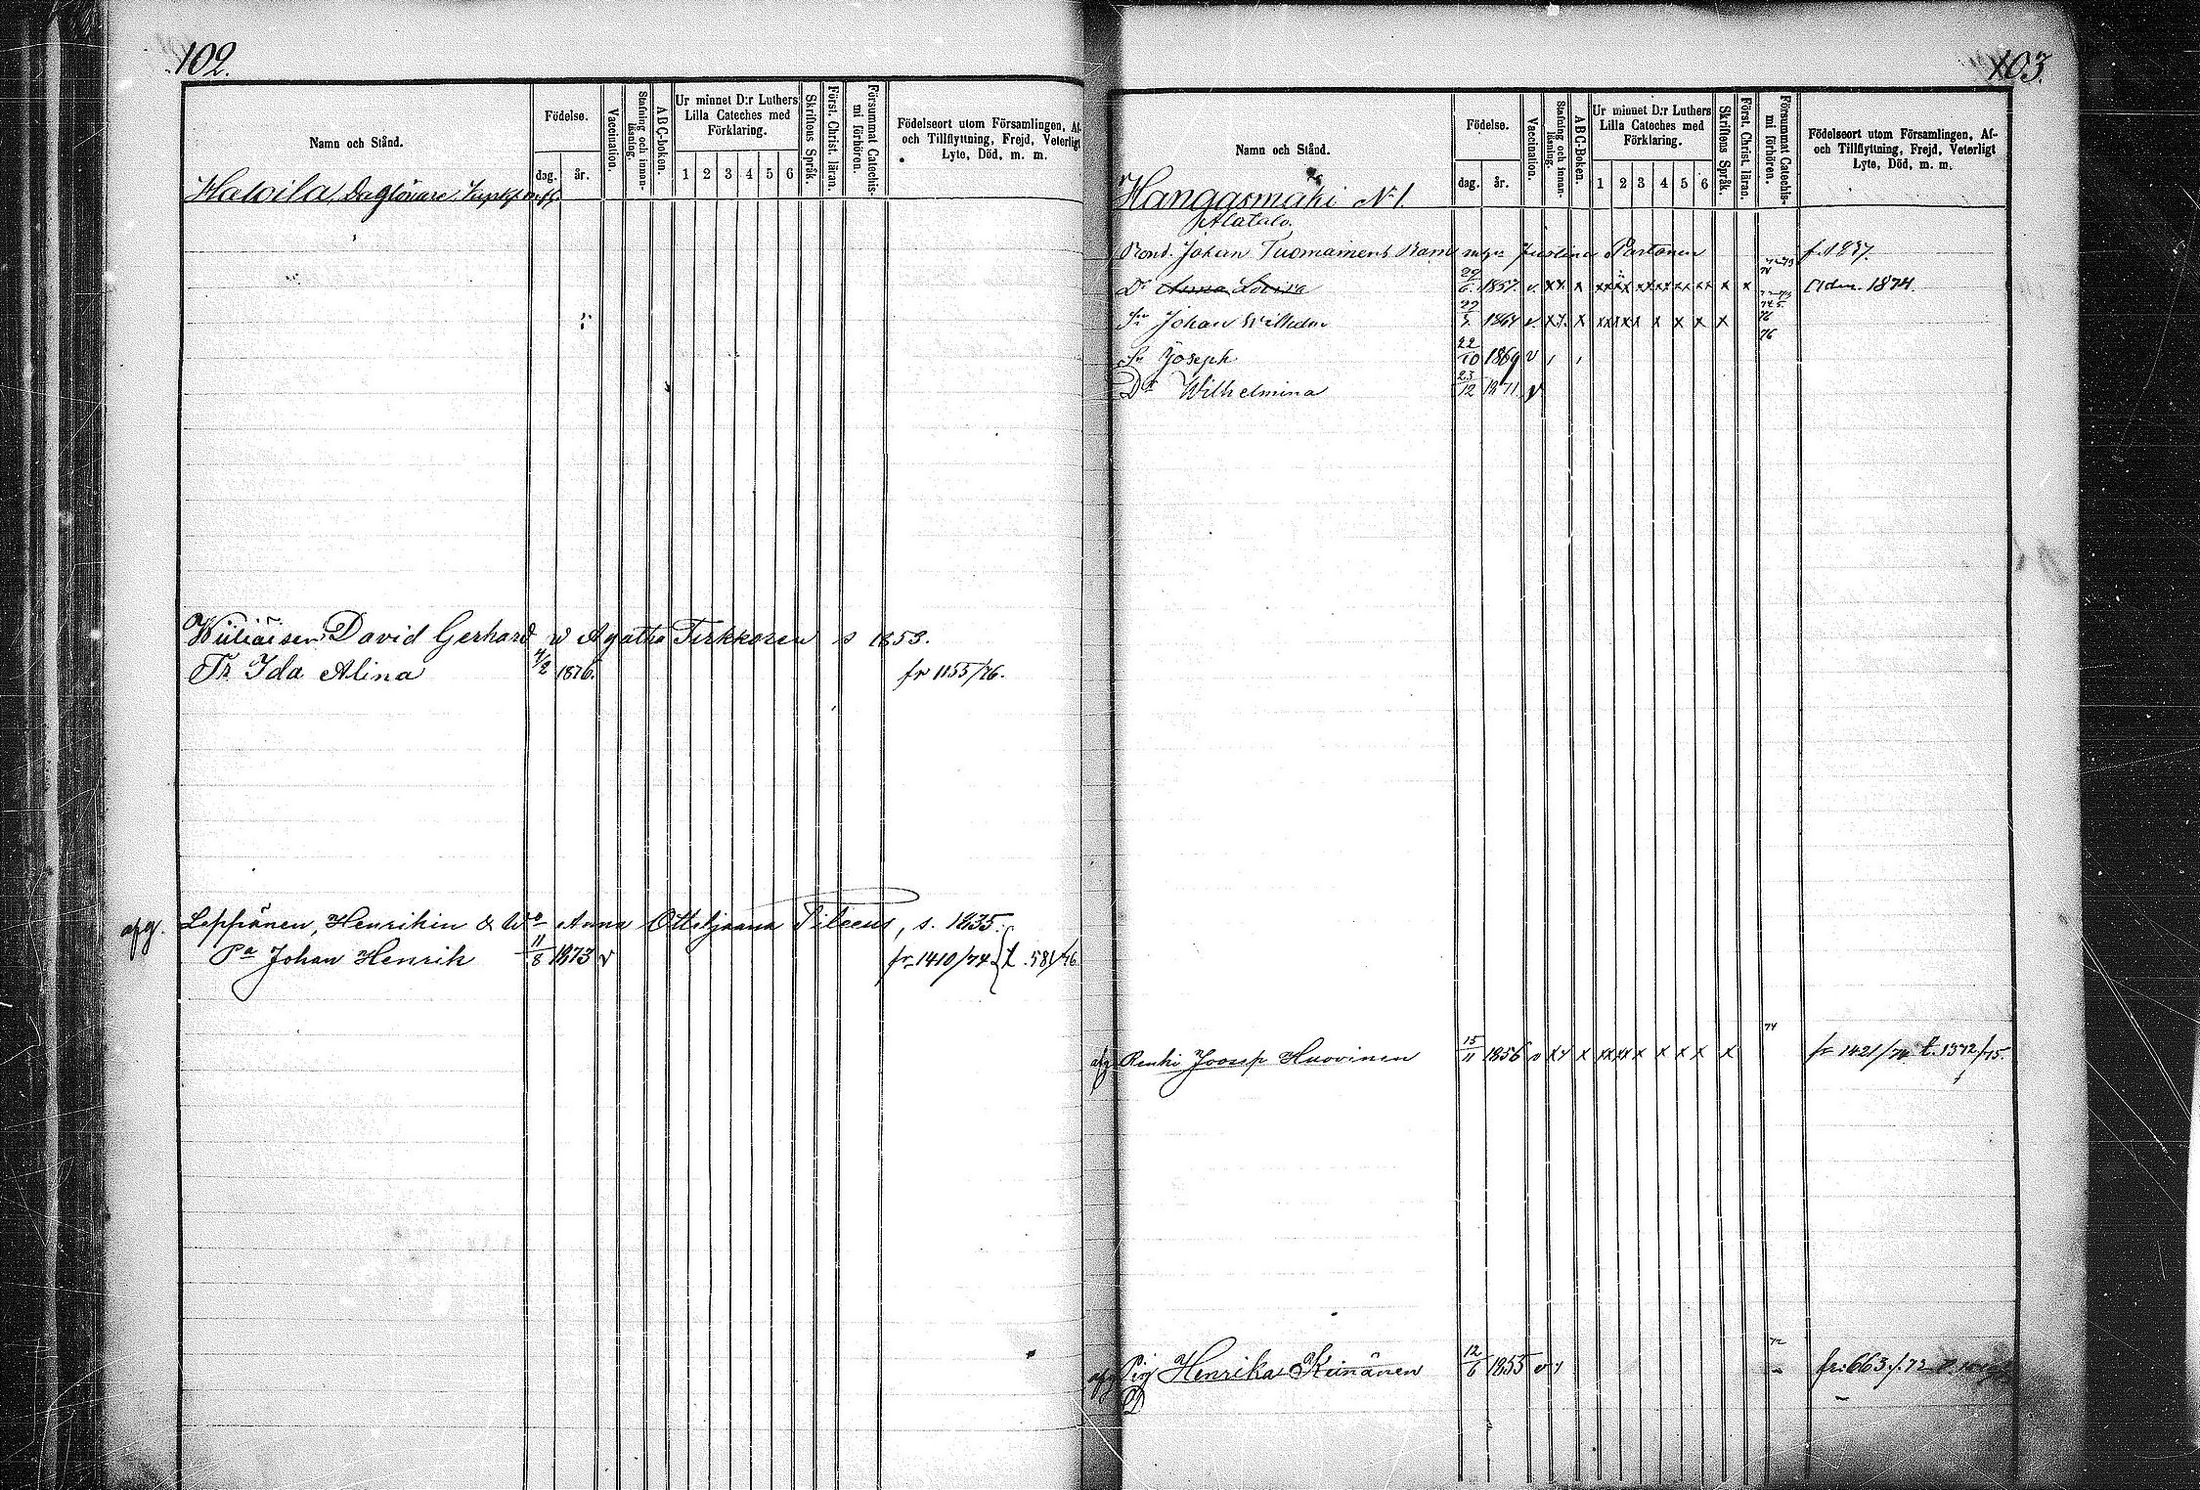 102.
Namn och Stånd.
Födelse.
dag. år.
Vaccination.
Stafning och innan-
läsning.
ABC-boken.
Ur minnet D:r Luthers
Lilla Cateches med
Förklaring.
1 2 3 4 5 6
Skriftens Språk.
Först. Christ. läran.
Försummat Catechis-
mi förhören.
Födelseort utom Församlingen, Af-
och Tillflyttning, Frejd, Veterligt
Lyte, Död, m. m.
Hawila,
David Gerhard w Agatha Tirkkonen s 1853.
Tr Ida Alina 4/2 1876. fr 1155/76.
afg. Leppänen, Henrikin & Wo Anna s. 1835.
Pa Johan Henrik 11/8 1873 v fr 1410/74 t. 581/76
103.
Namn och Stånd.
Födelse.
dag. år.
Vaccination.
Stafning och innan-
läsning.
ABC-boken.
Ur minnet D:r Luthers
Lilla Cateches med
Förklaring.
1 2 3 4 5 6
Skriftens Språk.
Först. Christ. läran.
Försummat Catechis-
mi förhören.
Födelseort utom Församlingen, Af-
och Tillflyttning, Frejd, Veterligt
Lyte, Död, m. m.
Hangasmäki No 1.
Alatalo.
Bond. Johan Tuomainens Barn Justina Partanen f. 1837.
Dr Anna Lovisa 1857. v x x x xx xx xx xx xx xx x x Adm. 1874.
Sn Johan Wilhelm 1864 v. x x. x xx xx x x x x x
76
Sn Joseph 22/10 1869 v
Dr Wilhelmina 23/12 1871 v
74
afg Renki Joosep Huovinen 15/11 1856 v x x x xx xx x x x x x fr 1421/74 t. 1372/75.
72
afg Pig Henrika Keinänen 12/6 1855 v fr: 663/72
D